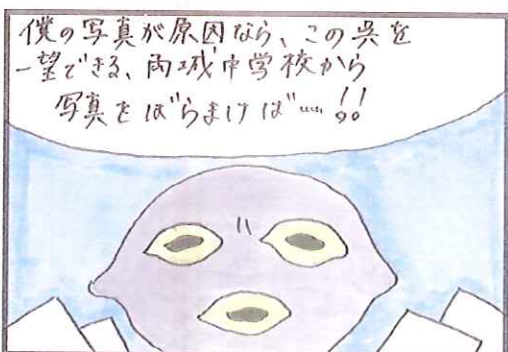 僕の写真が原因なら、この呉を
一望できる、両城中学校から
写真をばらまけば……!!